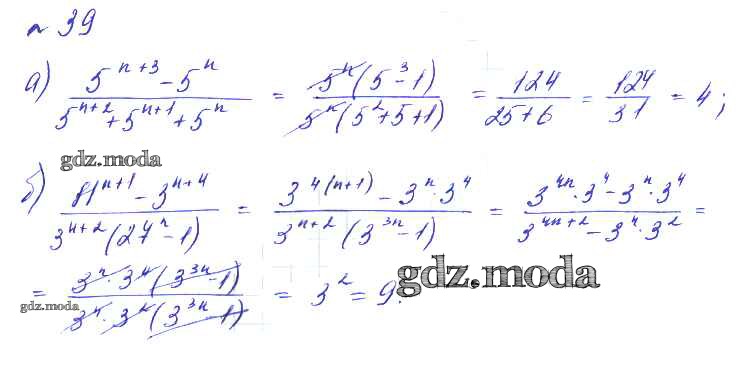 № 39
а) (5^{n+3} - 5^n)/(5^{n+2} + 5^{n+1} + 5^n) = (5^n(5^3 - 1))/(5^n(5^2 + 5 + 1)) = 124/(25 + 6) = 124/31 = 4;
gdz.moda
б) (81^{n+1} - 3^{n+4})/(3^{n+2}(27^n - 1)) = (3^{4(n+1)} - 3^n · 3^4)/(3^{n+2}(3^{3n} - 1)) = (3^{4n} · 3^4 - 3^n · 3^4)/(3^{4n+2} - 3^n · 3^2) =
gdz.moda
= (3^n · 3^4(3^{3n} - 1))/(3^n · 3^2(3^{3n} - 1)) = 3^2 = 9.
gdz.moda